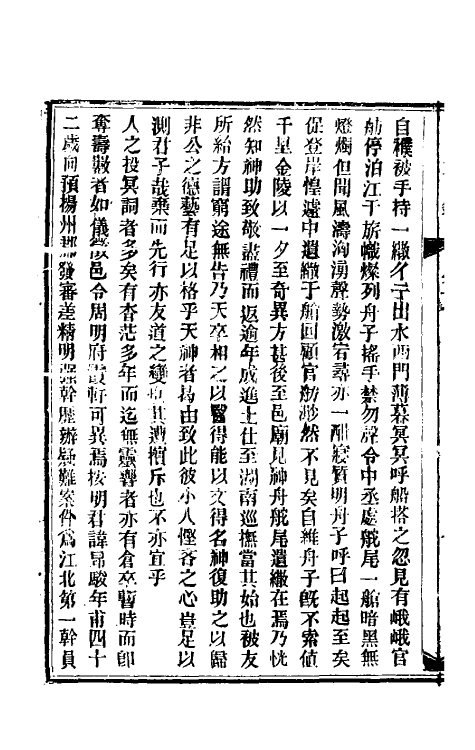 自襆被手持一繖彳亍出水西門薄暮冥冥呼船搭之忽見有峨峨官
舫停泊江干旂幟燦列舟子搖手禁勿聲令中丞處艙尾一艙暗黑無
燈燭但聞風濤洶湧聲勢激宕尋亦一酣寢質明舟子呼曰起起至矣
促登岸惶遽中遺繖于船回顧官舫渺然不見矣自維舟子既不索値
千里金陵以一夕至奇異方甚後至邑廟見神舟艙尾遺繖在焉乃恍
然知神助致敬盡禮而返逾年成進士仕至湖南巡撫當其始也被友
所紿方謂窮途無告乃天卒相之以醫得能以文得名神復助之以歸
非公之德藝有足以格乎天神者曷由致此彼小人慳吝之心豈足以
測君子哉藥而先行亦友道之變也其遭擯斥也不亦宜乎
人之投冥詞者多矣有杳茫多年而迄無靈響者亦有倉卒暫時而即
奪壽數者如儀徵邑令周明府 軒可異焉按明君諱 駿年甫四十
二歲向預楊州郡發審差精明強幹歷辦疑難案件爲江北第一幹員